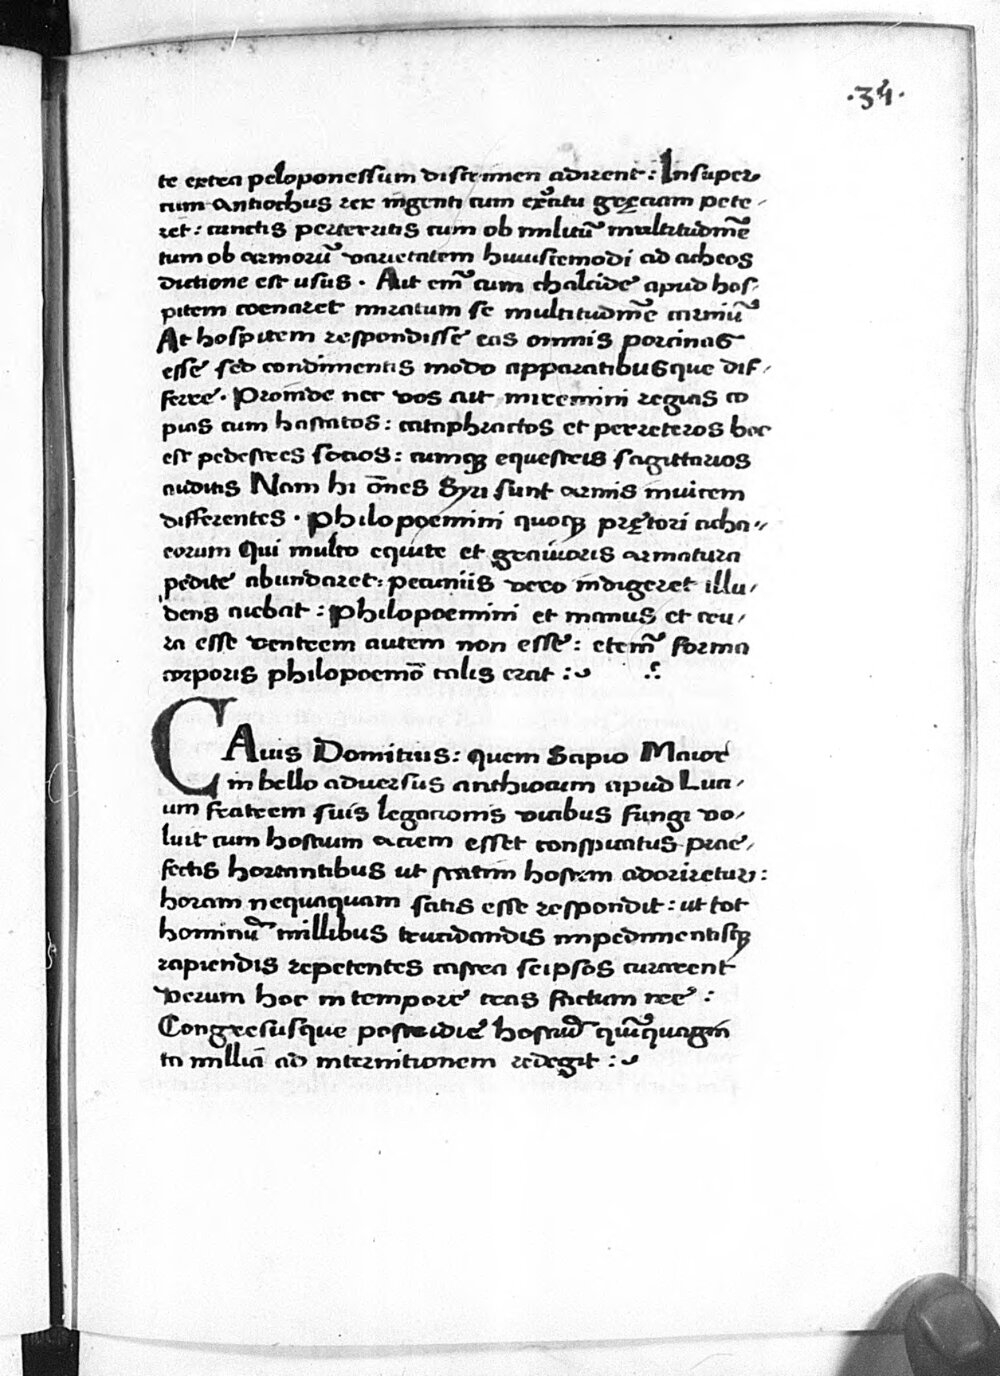 ·34·
te extra peloponessum discrimen adirent: Insuper
cum Antiochus rex ingenti cum exc̄itu gręciam pete-
ret: cunctis perterritis cum ob militū multitudinē
tum ob armorū varietatem huiuscemodi ad acheos
dictione est usus. Aut em̄ cum chalcide apud hos-
pitem coenaret miratum se multitudinē carniū
At hospitem respondisse eas omnis porcinas
esse sed condimentis modo apparatibusque dif-
ferre. Proinde nec vos ait miremini regias co
pias cum hastatos: cataphractos et perreteros hoc
est pedestres socios: cumqȝ equestreis sagittarios
auditis Nam hi ōnes Syri sunt armis inuicem
differentes. Philopoemini quoqȝ prętori acha-
eorum Qui multo equite et grauioris armatura
pedite abundaret: pecuniis vero indigeret illu-
dens aiebat: Philopoemini et manus et cru-
ra esse ventrem autem non esse: etem̄ forma
corporis philopoemō talis erat:
CAius Domitius: quem Scipio Maior
in bello aduersus anthiocum apud Luci-
um fratrem suis legationis vicibus fungi vo-
luit cum hostium aciem esset conspicatus prae-
fectis hortantibus ut statim hostem adoriretur:
horam nequaquam satis esse respondit: ut tot
hominū millibus trucidandis impedimentisqȝ
rapiendis repetentes castra seipsos curarent
verum hoc in tempore cras factum ire:
Congressusque postridie hostiū quīquagin
ta millia ad internitionem redegit: